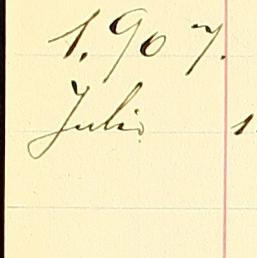 1.907.
Julio 1